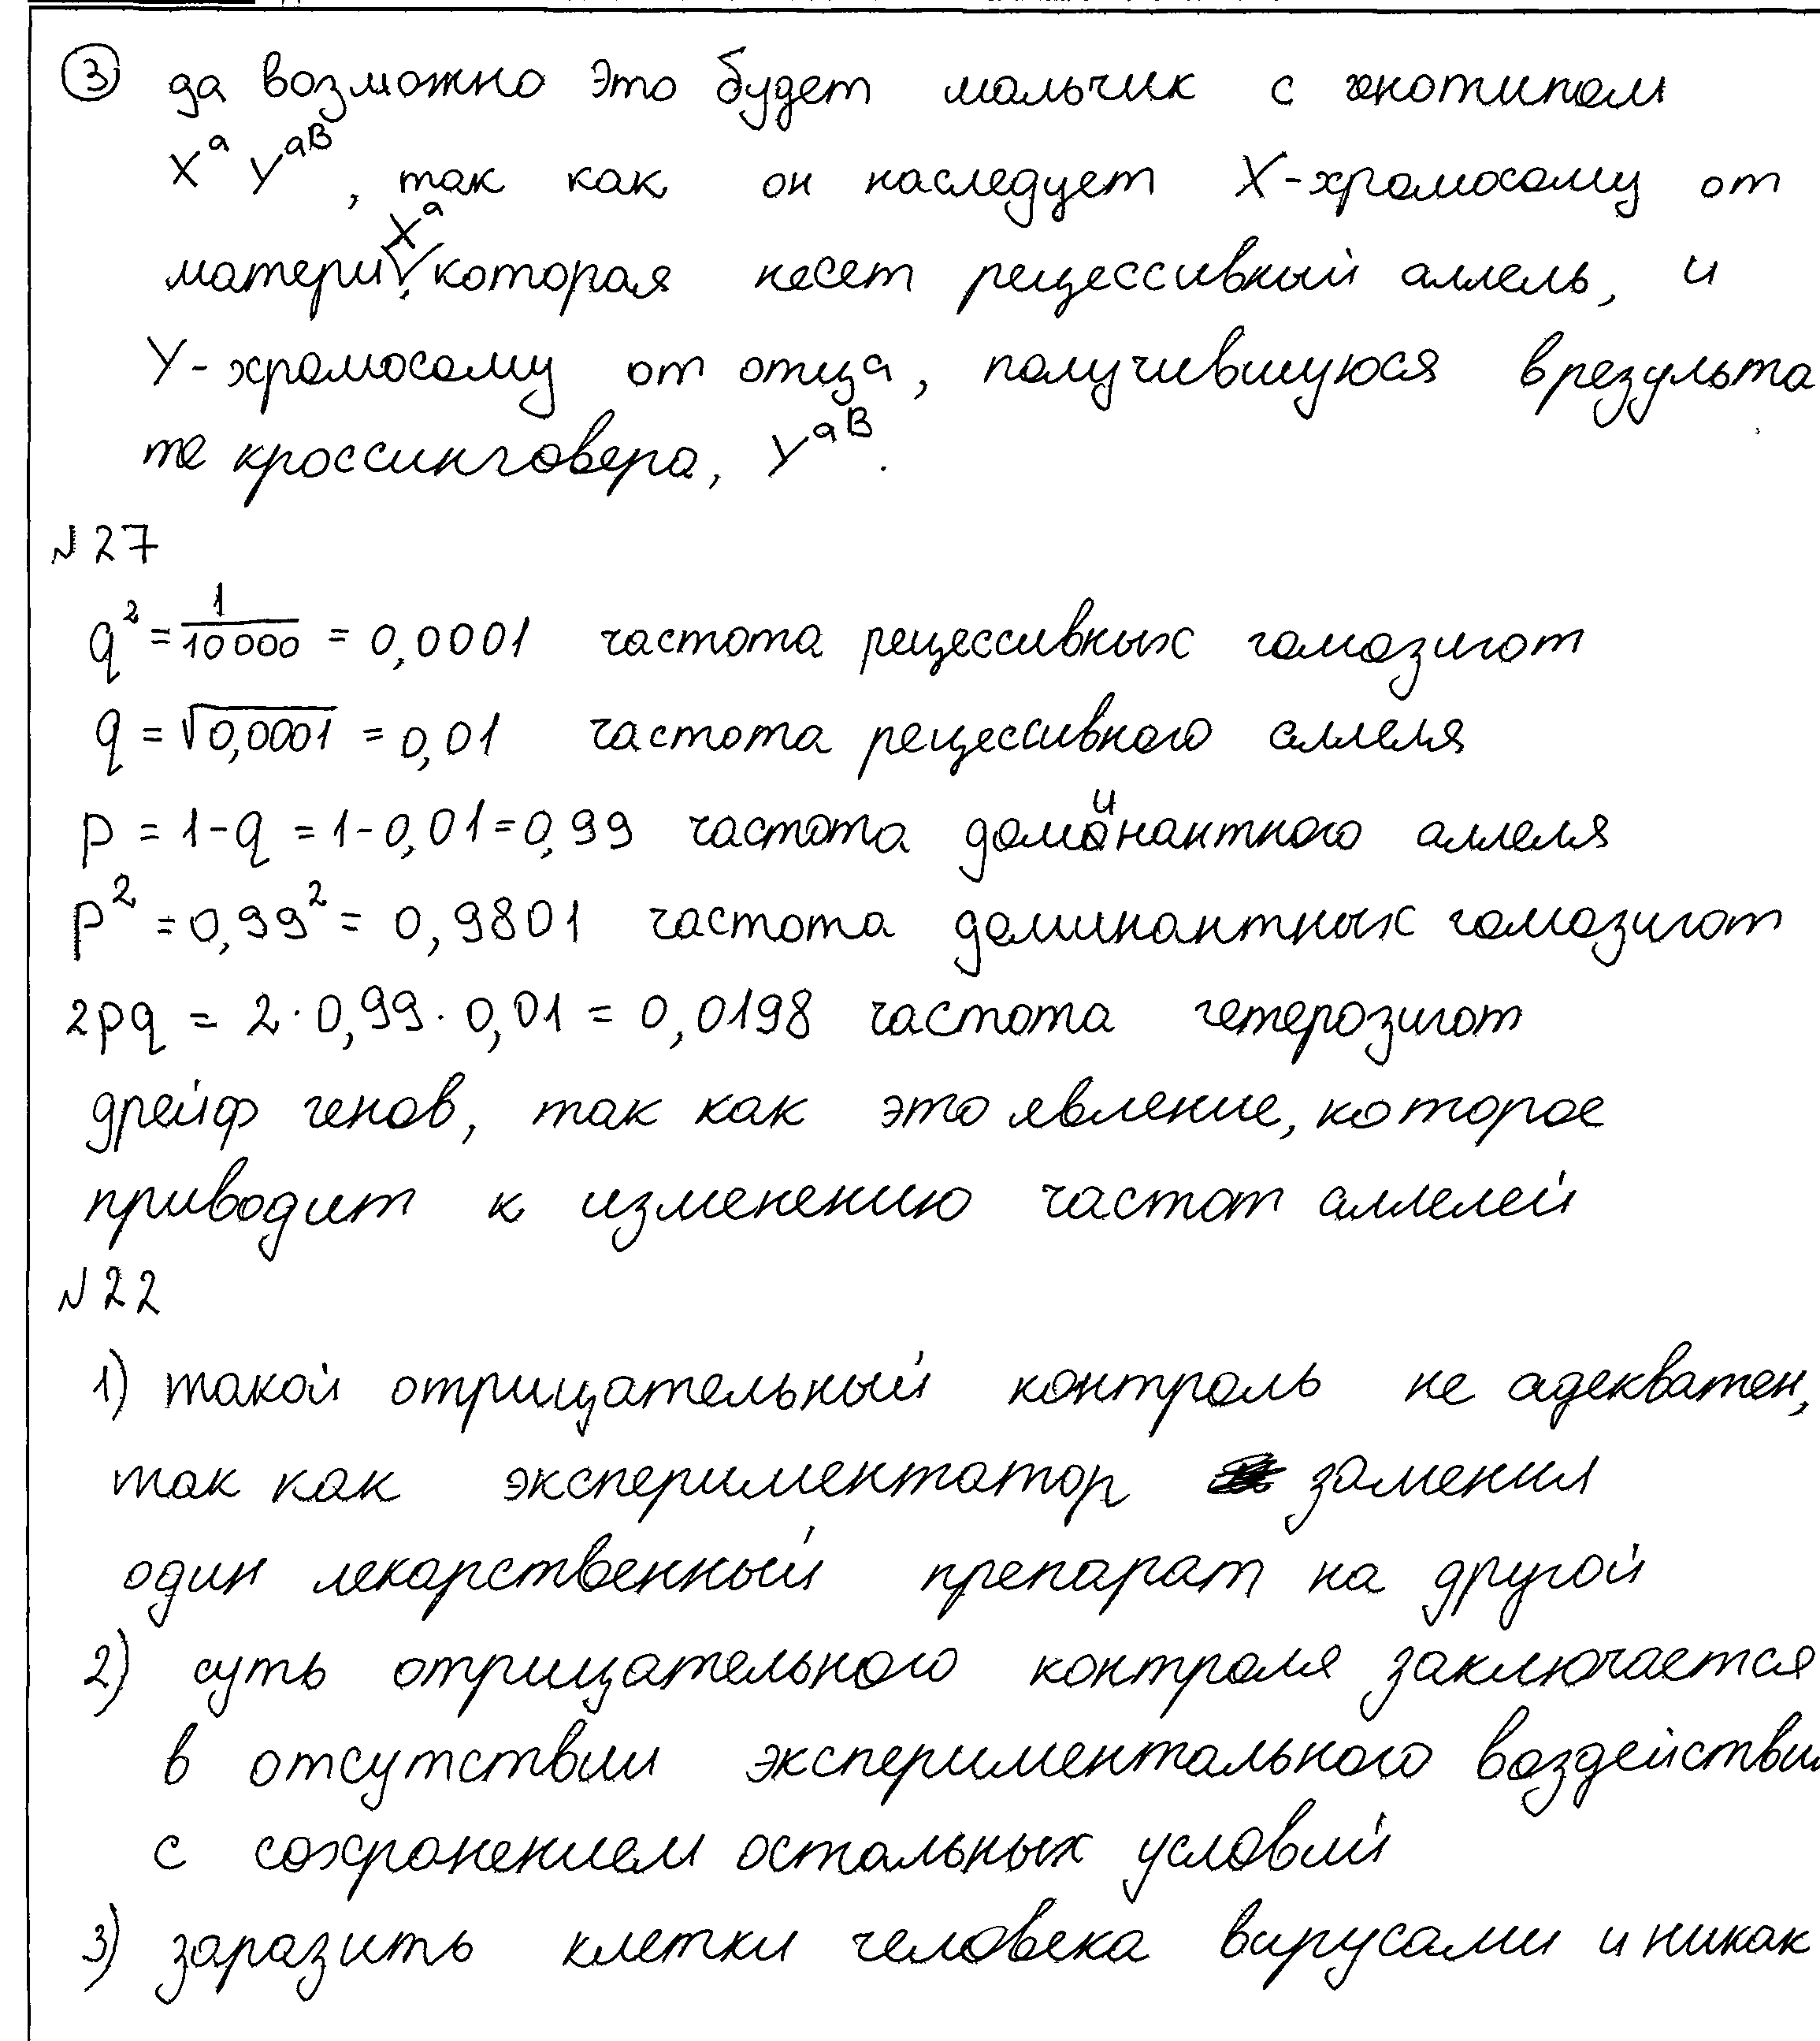 ③ да возможно это будет мальчик с генотипом
Xᵃ Yᵃᴮ, так как он наследует X-хромосому от
Xᵃ
матери, которая несет рецессивный аллель, и
Y-хромосому от отца, получившуюся в результа
те кроссинговера, Yᵃᴮ.
№27
q² = 1/10000 = 0,0001 частота рецессивных гомозигот
q = √0,0001 = 0,01 частота рецессивного аллеля
p = 1-q = 1-0,01=0,99 частота доминантного аллеля
p² = 0,99² = 0,9801 частота доминантных гомозигот
2pq = 2·0,99·0,01 = 0,0198 частота гетерозигот
дрейф генов, так как это явление, которое
приводит к изменению частот аллелей
№22
1) такой отрицательный контроль не адекватен,
так как экспериментатор заменил
один лекарственный препарат на другой
2) суть отрицательного контроля заключается
в отсутствии экспериментального воздействия
с сохранением остальных условий
3) заразить клетки человека вирусами и никак